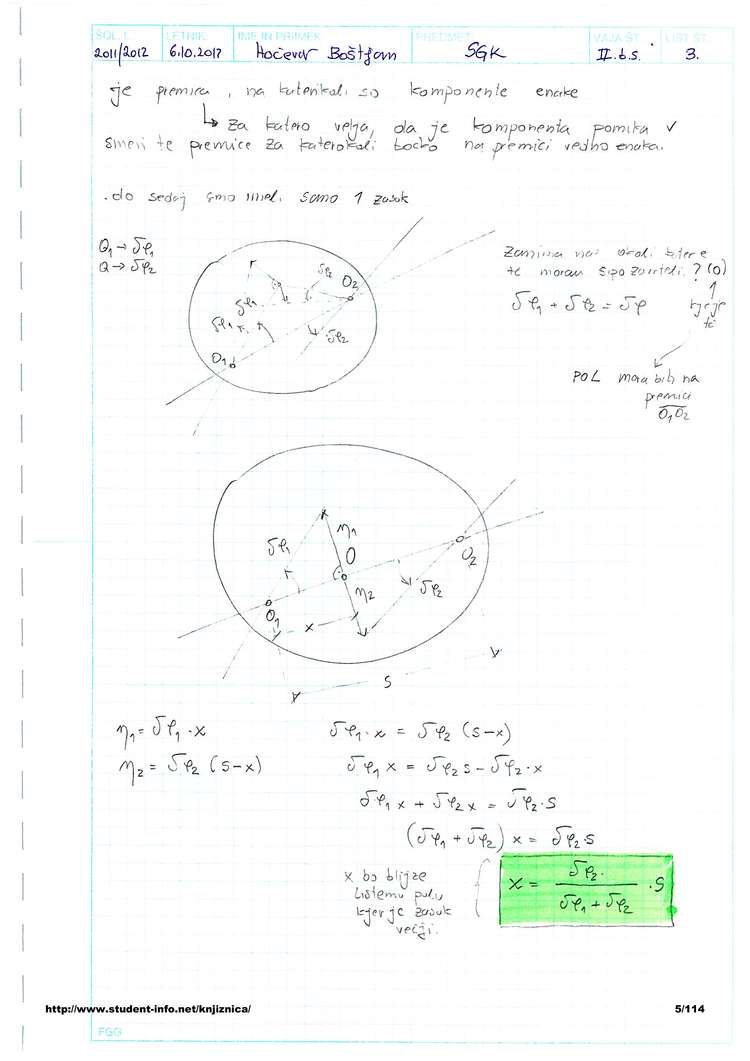 ŠOL. L. LETNIK IME IN PRIIMEK PREDMET VAJA ŠT. LIST ŠT.
2011/2012 6.10.2011 Hočevar Boštjan SGK II.b.s. 3.
je premica, na katerikoli so komponente enake
↳ za katero velja, da je komponenta pomika v
smeri te premice za katerokoli točko na premici vedno enaka.
. do sedaj smo imeli samo 1 zasuk
O₁ → δφ₁
O → δφ₂
δφ₂
O₂
δφ₁
δφ₁
δφ₂
O₁
Zanima nas okoli katere
te moram šipo zavrteli? (O)
δφ₁ + δφ₂ = δφ
kje je
POL mora biti na
premici
O₁O₂
δφ₁
η₁
O
O₂
η₂
δφ₂
O₁
x
S
η₁ = δφ₁ · x
η₂ = δφ₂ (S-x)
δφ₁ · x = δφ₂ (S-x)
δφ₁ x = δφ₂ S - δφ₂ · x
δφ₁ x + δφ₂ x = δφ₂ · S
(δφ₁ + δφ₂) x = δφ₂ · S
x = δφ₂ / (δφ₁ + δφ₂) · S
x bo bližje
tistemu polu
kjer je zasuk
večji.
http://www.student-info.net/knjiznica/ 5/114
FGG